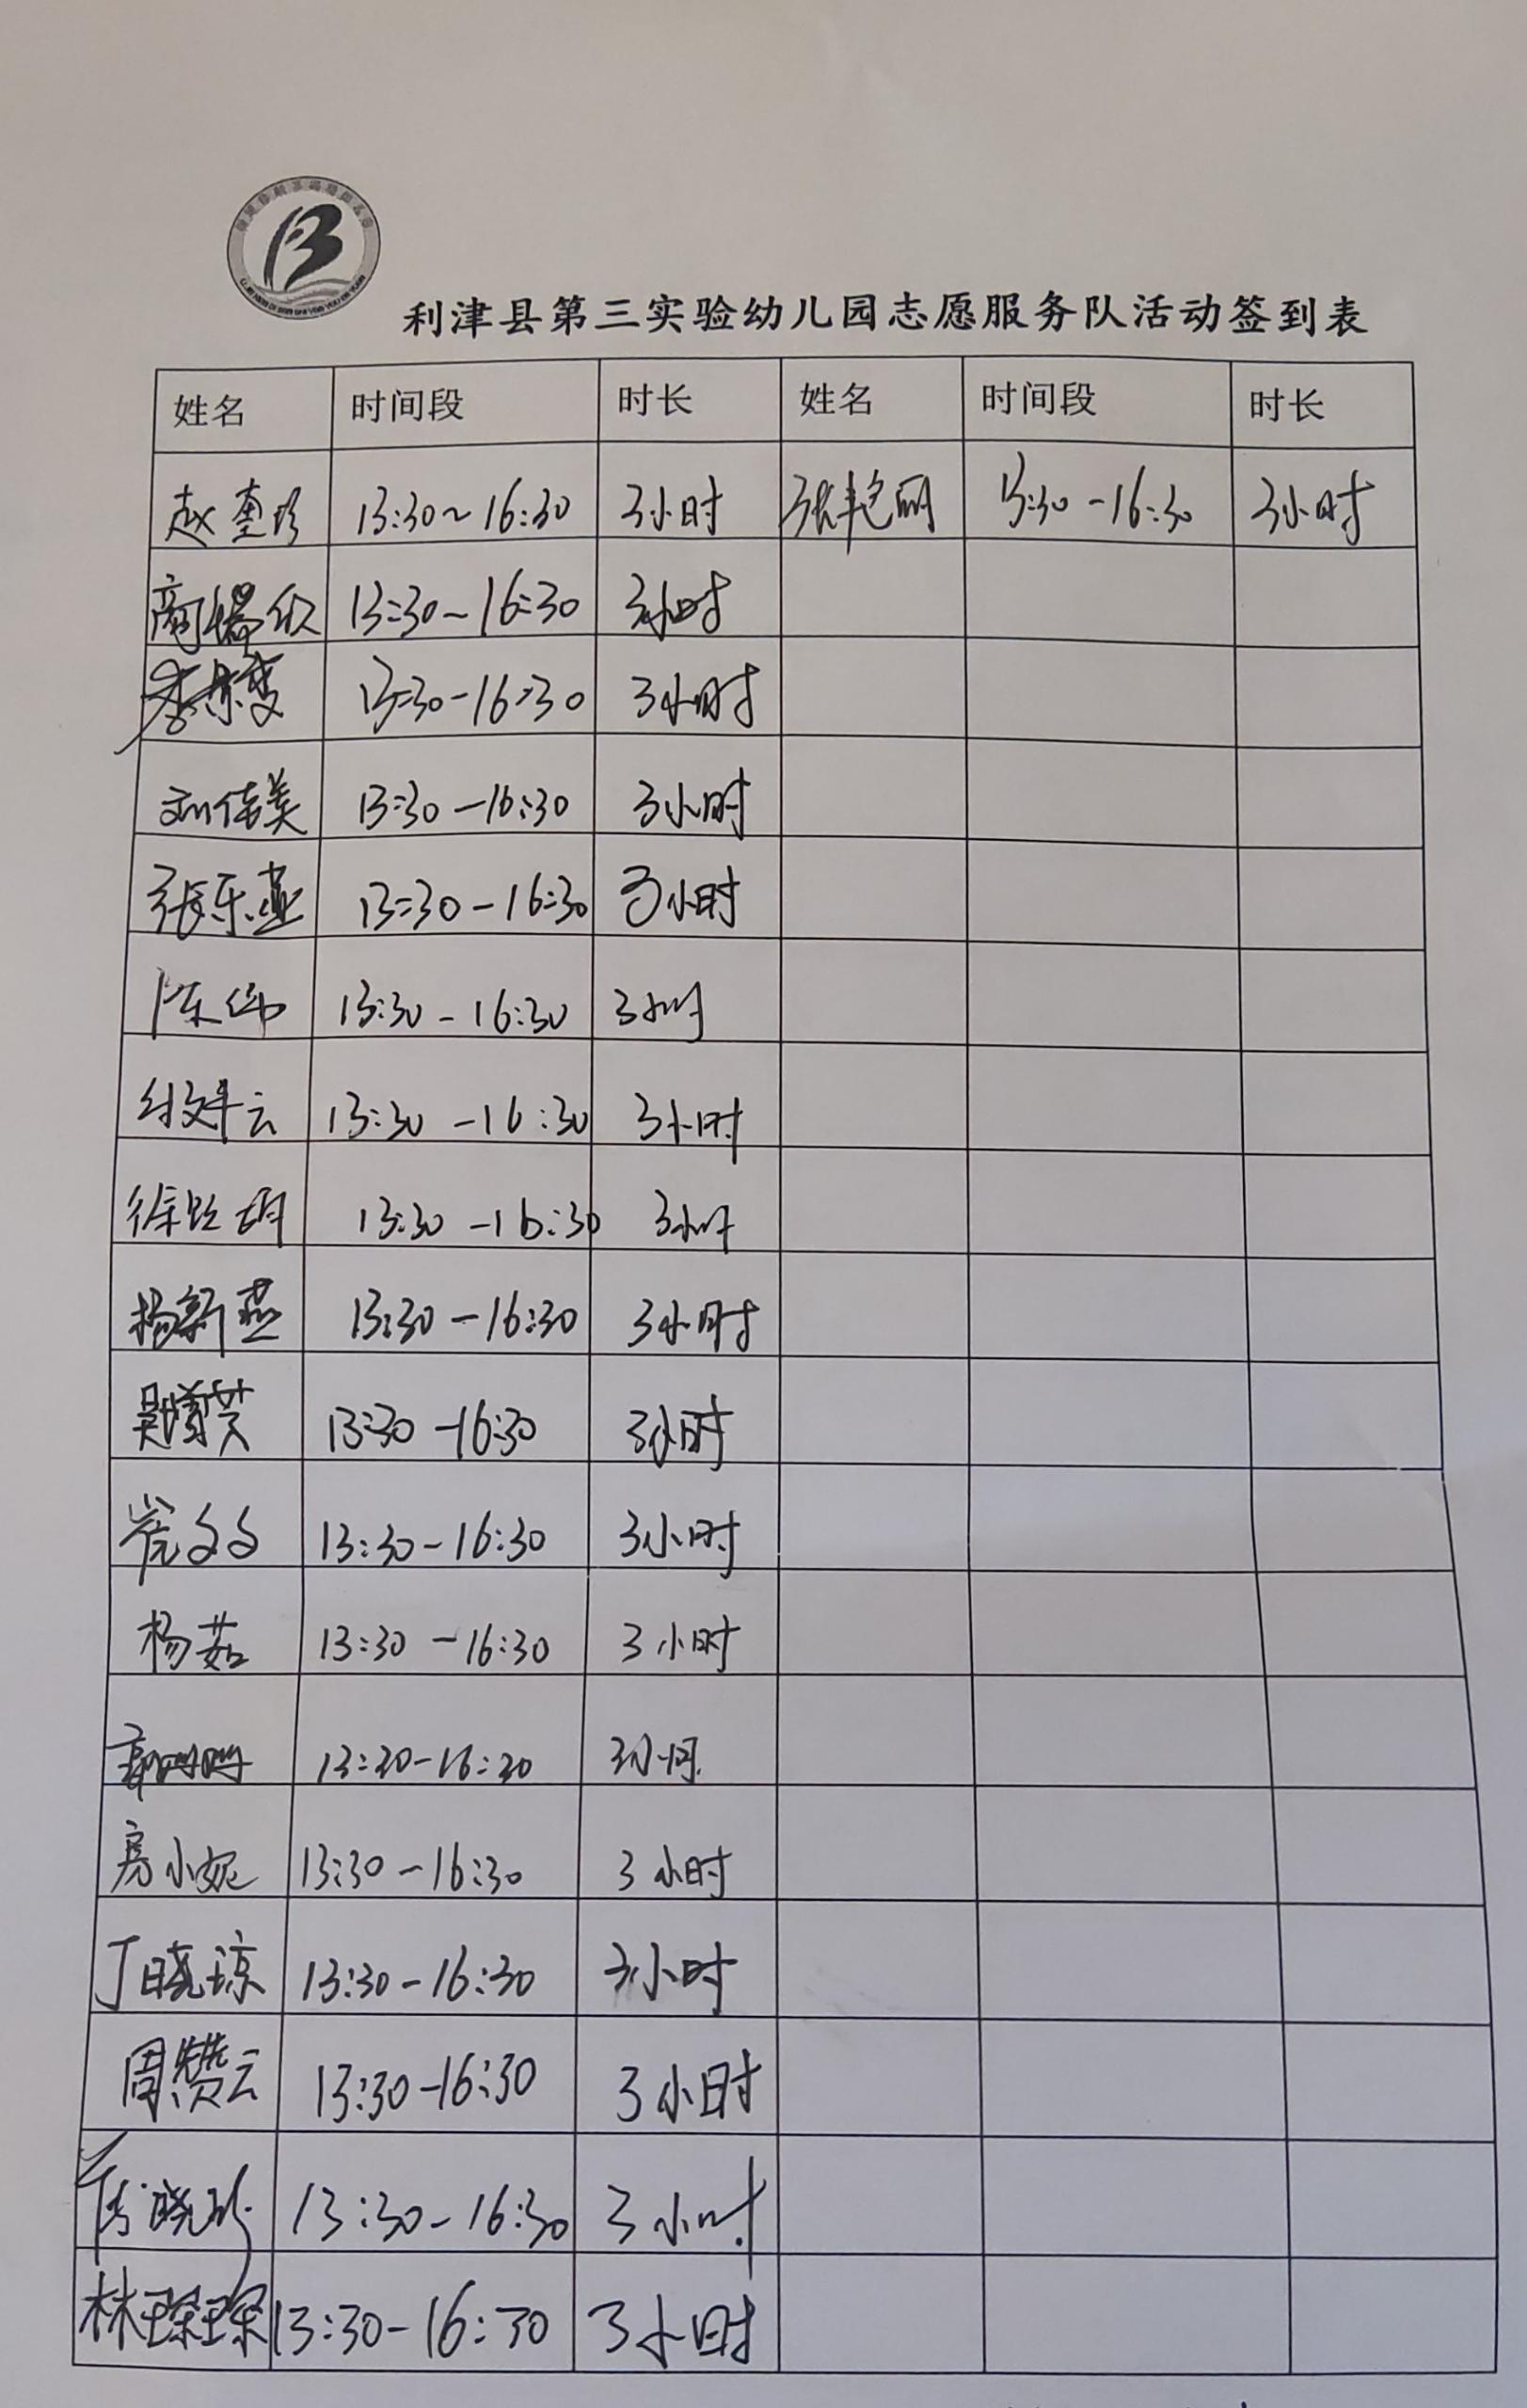 利津县第三实验幼儿园志愿服务队活动签到表
姓名 时间段 时长 姓名 时间段 时长
赵 13:30~16:30 3小时 张艳丽 13:30-16:30 3小时
商 13:30~16:30 3小时
李荣雯 13:30-16:30 3小时
刘佳美 13:30-16:30 3小时
张乐燕 13:30-16:30 3小时
陈伟 13:30-16:30 3小时
云 13:30-16:30 3小时
徐 13:30-16:30 3小时
杨新燕 13:30-16:30 3小时
吴 13:30-16:30 3小时
崔文文 13:30-16:30 3小时
杨茹 13:30-16:30 3小时
郭 13:30-16:30 3小时
房小妮 13:30-16:30 3小时
丁晓琼 13:30-16:30 3小时
周赞云 13:30-16:30 3小时
晓 13:30-16:30 3小时
林琛琛 13:30-16:30 3小时